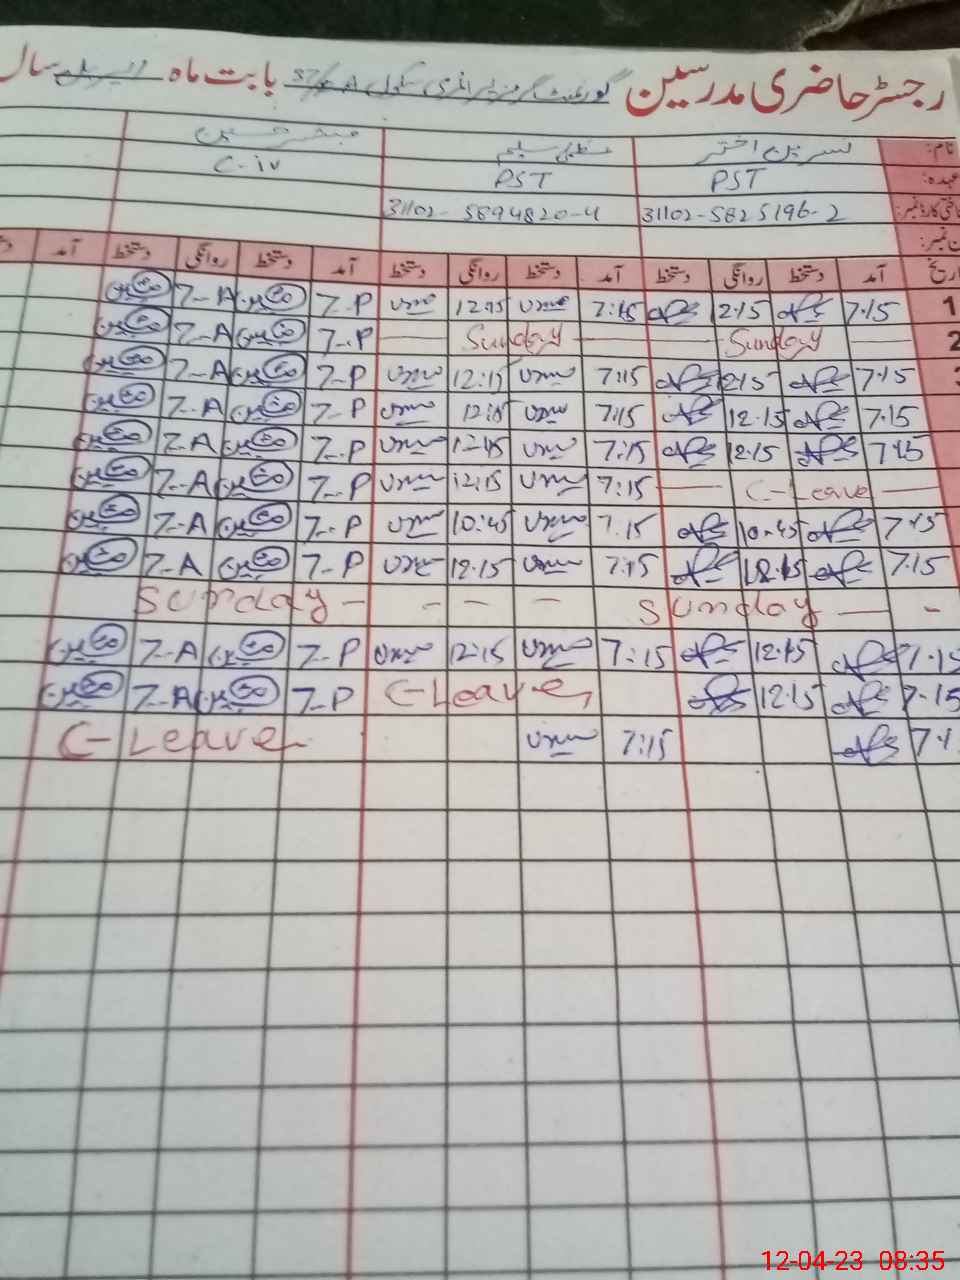 رجسٹر حاضری مدرسین گورنمنٹ گرلز پرائمری سکول 57/A بابت ماہ اپریل سال
نام: نسرین اختر عظمیٰ سلیم مبشر حسین
عہدہ: PST PST C-iv
شناختی کارڈ نمبر: 31102-5825196-2 31102-5894820-4
ن نمبر:
تاریخ آمد دستخط روانگی دستخط آمد دستخط روانگی دستخط آمد دستخط روانگی دستخط آمد
1 7.15 12.15 7:15 12.15 7-P 7-A
2 Sunday Sunday 7-P 7-A
3 7.15 12.15 7:15 12:15 7-P 7-A
7.15 12.15 7:15 12:15 7-P 7-A
7.15 12.15 7:15 12.15 7-P 7-A
C-Leave 7:15 12:15 7-P 7-A
7.15 10.45 7.15 10:45 7-P 7-A
7.15 12.15 7:15 12.15 7-P 7-A
Sunday - - - - Sunday — -
7.15 12.15 7:15 12:15 7-P 7-A
7.15 12.15 C-Leave 7-P 7-A
7.1 7:15 C-Leave
12-04-23 08:35